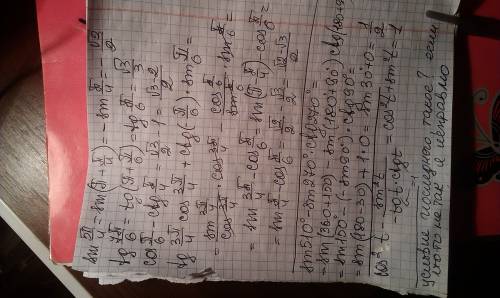 sin 5π/4 = sin(π + π/4) = -sin π/4 = -√2/2
tg 7π/6 = tg(π + π/6) = tg π/6 = √3/3
cos π/6 - ctg π/4 = √3/2 - 1 = √3-2/2
tg 3π/4 cos 3π/4 + ctg(-π/6) · sin π/6 =
= sin 3π/4 / cos 3π/4 · cos 3π/4 - cos π/6 / sin π/6 · sin π/6 =
= sin 3π/4 - cos π/6 = sin(π - π/4) - cos π/6 =
= sin π/4 - cos π/6 = √2/2 - √3/2 = √2-√3/2
sin 510° - sin 270° · ctg 270° =
= sin(360+150) - sin(180+90°) ctg(180+90)
= sin 150 - (-sin 90°) · ctg 90° =
= sin(180-30) + 1·0 = sin 30 + 0 = 1/2
cos² t - sin² t / -tg t · ctg t = cos² t + sin² t = 1
условие последнего такое? если
что то не так, я исправлю